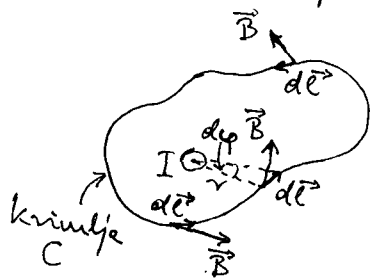 B⃗
dℓ⃗
dφ B⃗
I r
dℓ⃗
dℓ⃗
krivulja
C
B⃗